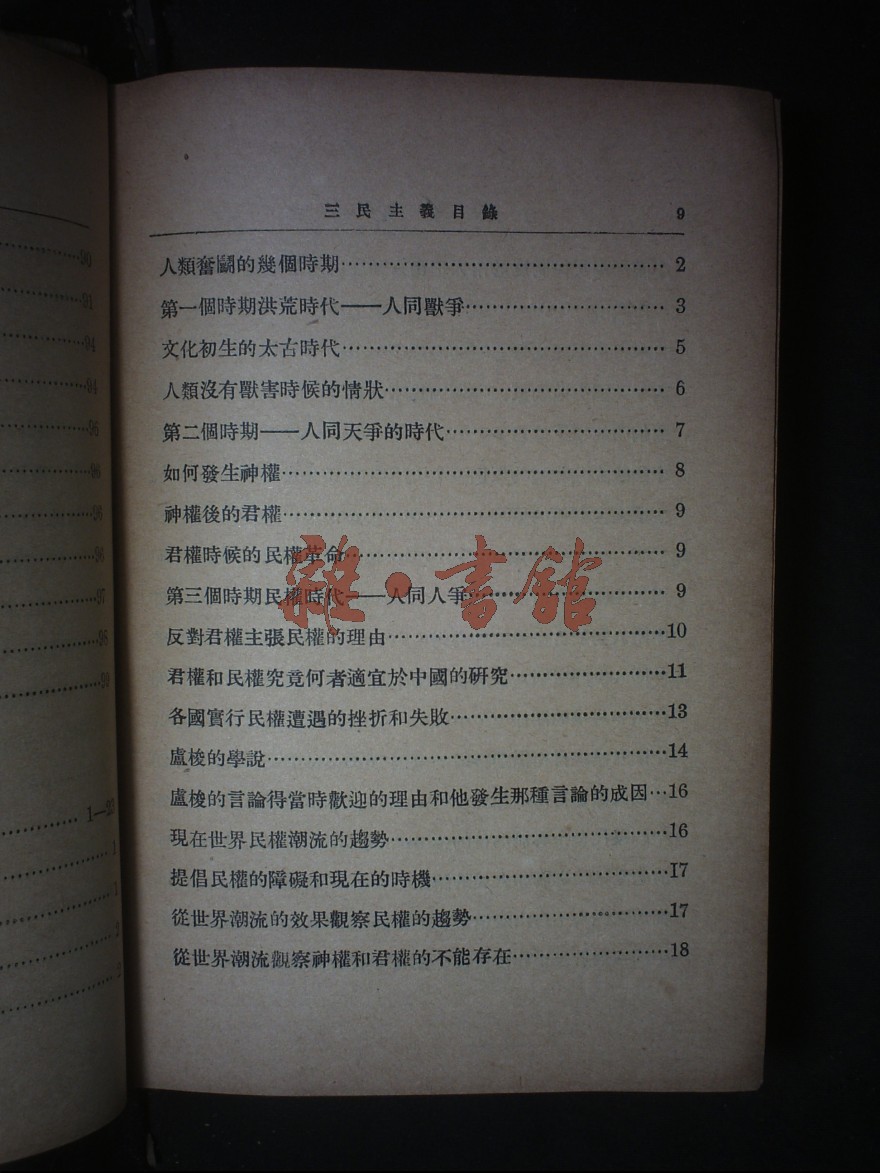 三民主義目錄 9
人類奮鬭的幾個時期……………………………………2
第一個時期洪荒時代——人同獸爭……………………3
文化初生的太古時代……………………………………5
人類沒有獸害時候的情狀………………………………6
第二個時期——人同天爭的時代………………………7
如何發生神權……………………………………………8
神權後的君權……………………………………………9
君權時候的民權革命……………………………………9
第三個時期民權時代——人同人爭……………………9
反對君權主張民權的理由………………………………10
君權和民權究竟何者適宜於中國的研究………………11
各國實行民權遭遇的挫折和失敗………………………13
盧梭的學說………………………………………………14
盧梭的言論得當時歡迎的理由和他發生那種言論的成因…16
現在世界民權潮流的趨勢………………………………16
提倡民權的障礙和現在的時機…………………………17
從世界潮流的效果觀察民權的趨勢……………………17
從世界潮流觀察神權和君權的不能存在………………18
雜·書館
90
91
94
94
96
96
97
1
1
2